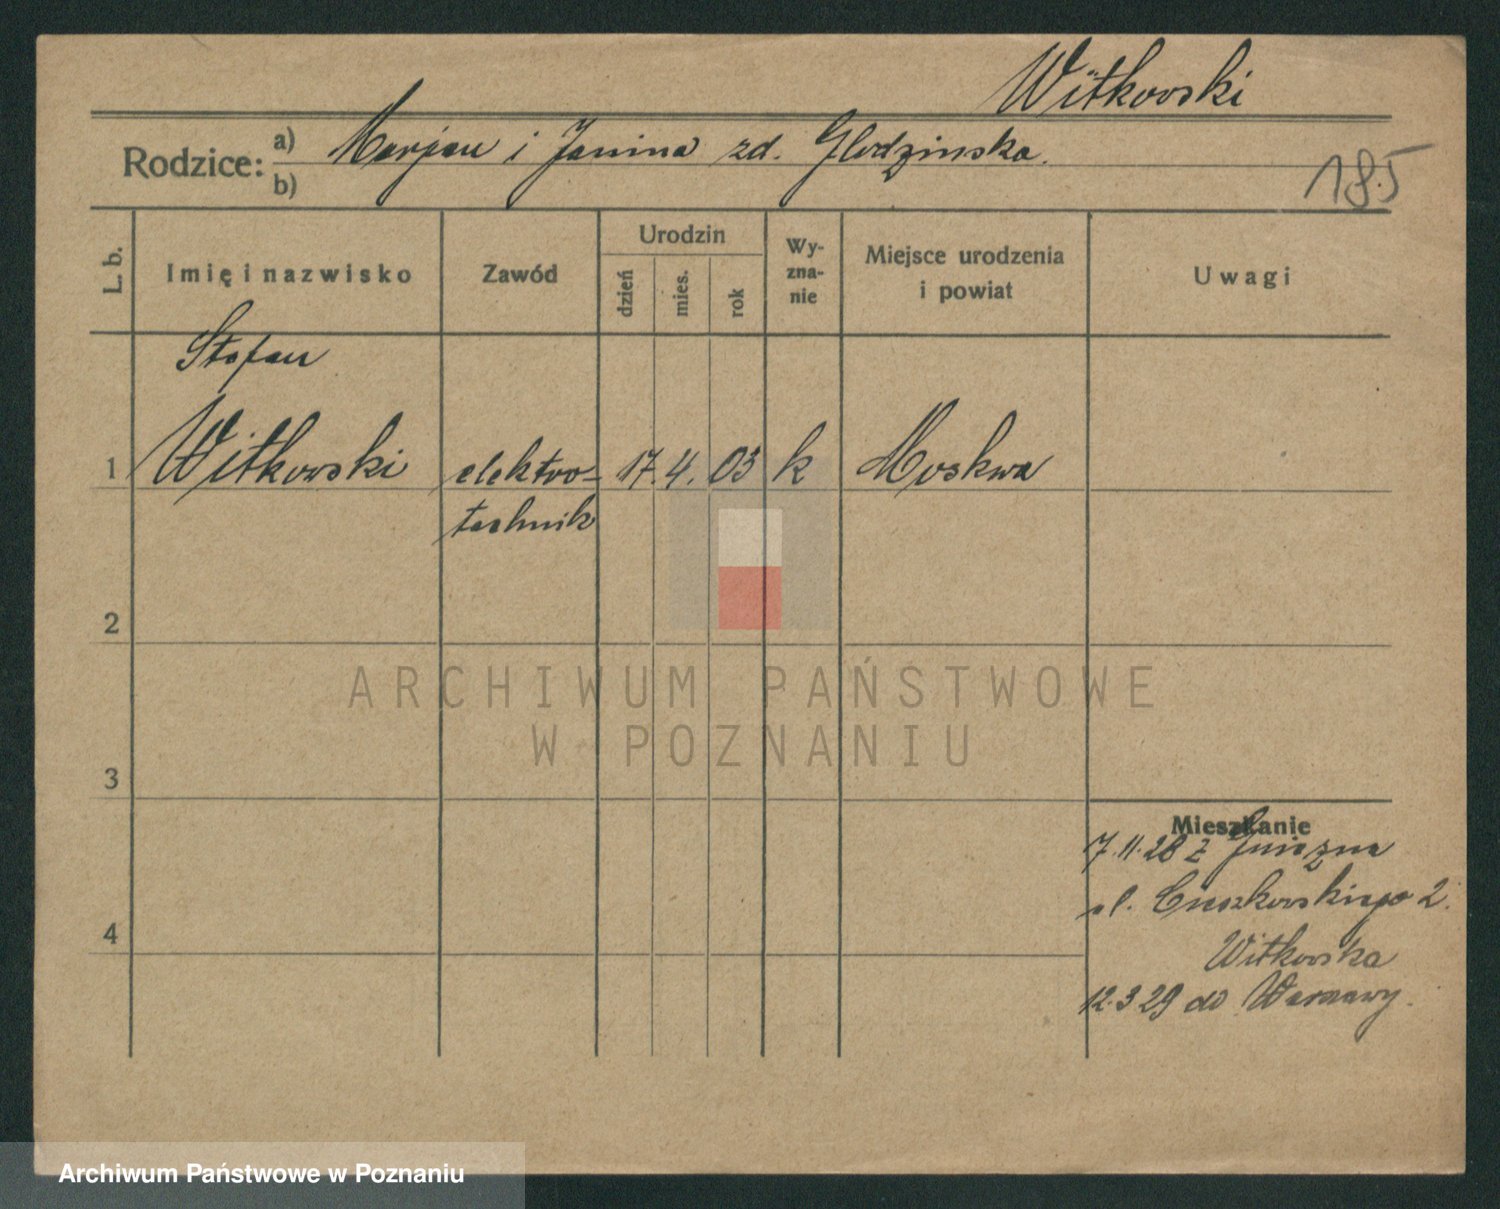 Witkowski
Rodzice: a) Marjan i Janina zd. Glodzinska.
b)
185
L. b. Imię i nazwisko Zawód Urodzin dzień mies. rok Wy-zna-nie Miejsce urodzenia i powiat Uwagi
Stefan
1 Witkowski elektro- 17. 4. 03 k Moskwa
technik
2
ARCHIWUM PAŃSTWOWE
W POZNANIU
3
Mieszkanie
7.11.28 z Gniezna
ul. Cieszkowskiego 2.
4
Witkowska
12.3 29 do Warszawy.
Archiwum Państwowe w Poznaniu